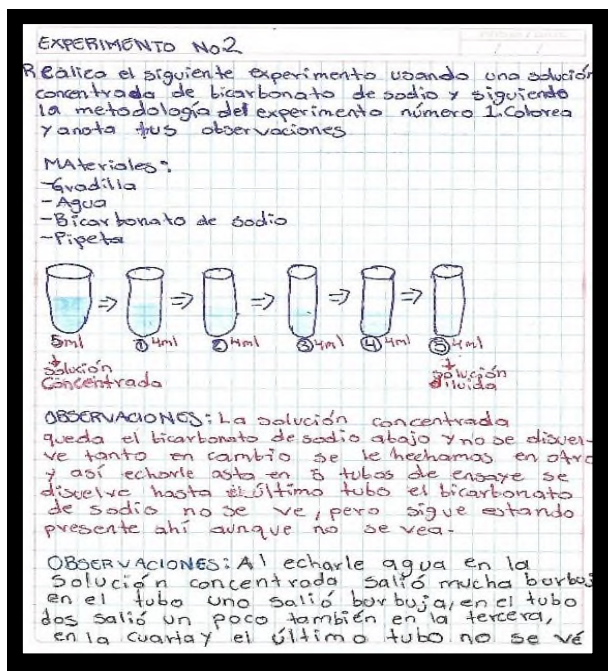 EXPERIMENTO No.2
Realica el siguiente experimento usando una solución
concentrada de bicarbonato de sodio y siguiendo
la metodología del experimento número 1. Colorea
y anota tus observaciones
MAteriales:
-Gradilla
-Agua
-Bicarbonato de sodio
-Pipeta
⇒ ⇒ ⇒ ⇒ ⇒
5ml ① 4ml ② 4ml ③ 4ml ④ 4ml ⑤ 4ml
Solución Solución
Concentrada diluida
OBSERVACIONES: La solución concentrada
queda el bicarbonato de sodio abajo y no se disuel-
ve tanto en cambio se le hechamos en otro
y así echarle asta en 5 tubos de ensaye se
disuelve hasta el último tubo el bicarbonato
de sodio no se ve, pero sigue estando
presente ahí aunque no se vea.
OBSERVACIONES: Al echarle agua en la
Solución concentrada salió mucha burbuj
en el tubo uno salió burbuja, en el tubo
dos salió un poco también en la tercera,
en la cuarta y el último tubo no se vé